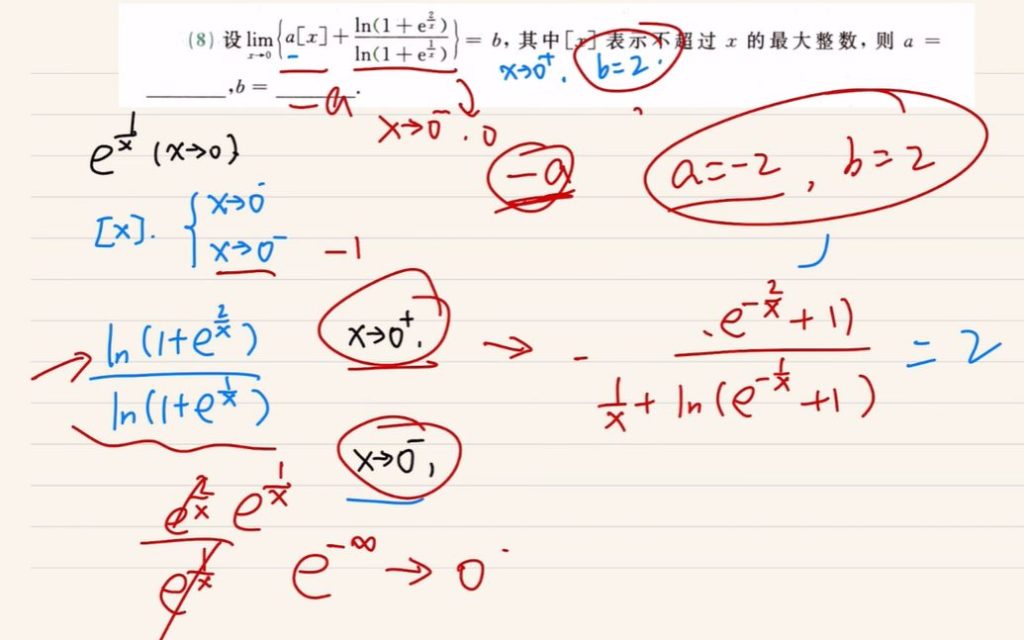 (8) 设 lim_{x→0} { a[x] + ln(1+e^{2/x}) / ln(1+e^{1/x}) } = b, 其中[x]表示不超过 x 的最大整数, 则 a =
________, b = ________.
x→0⁺. b=2.
-a
x→0⁻. 0
e^{1/x} (x→0)
-a
a=-2, b=2
[x]. { x→0
x→0⁻ -1
ln(1+e^{2/x}) / ln(1+e^{1/x})
x→0⁺. → - .e^{-2/x}+1) / 1/x + ln(e^{-1/x}+1) = 2
x→0⁻,
e^{2/x} / e^{1/x} e^{1/x}
e^{-∞} → 0